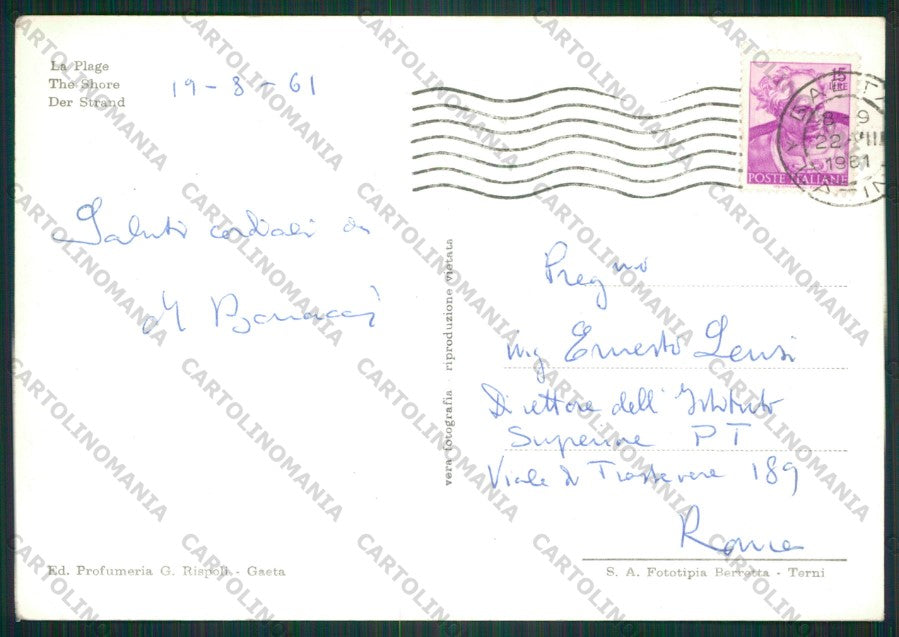 La Plage
The Shore
Der Strand
19-8-61
Saluti cordiali da
M Bonacci
vera fotografia - riproduzione vietata
15
LIRE
POSTE ITALIANE
GAETA
8 - 9
22 VIII
1961
LATINA
Preg mo
ing Ernesto Lensi
Direttore dell' Istituto
Superiore P T
Viale di Trastevere 189
Roma
Ed. Profumeria G. Rispoli - Gaeta
S. A. Fototipia Berretta - Terni
CARTOLINOMANIA